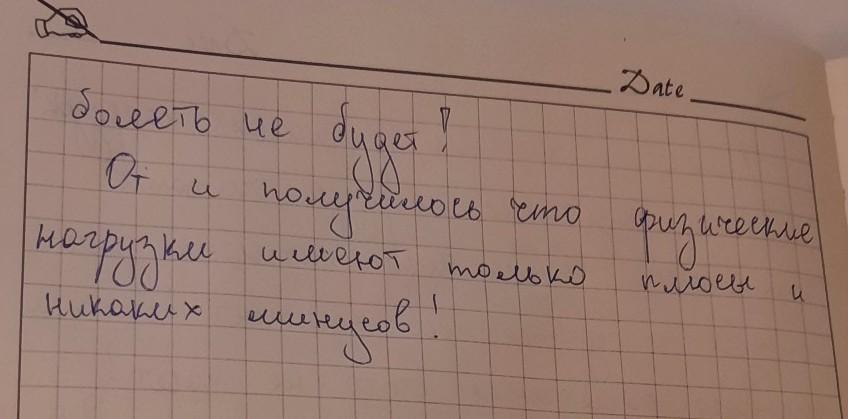 Date
болеть не будет!
От и получилось что физические
нагрузки имеют только плюсы и
никаких минусов!